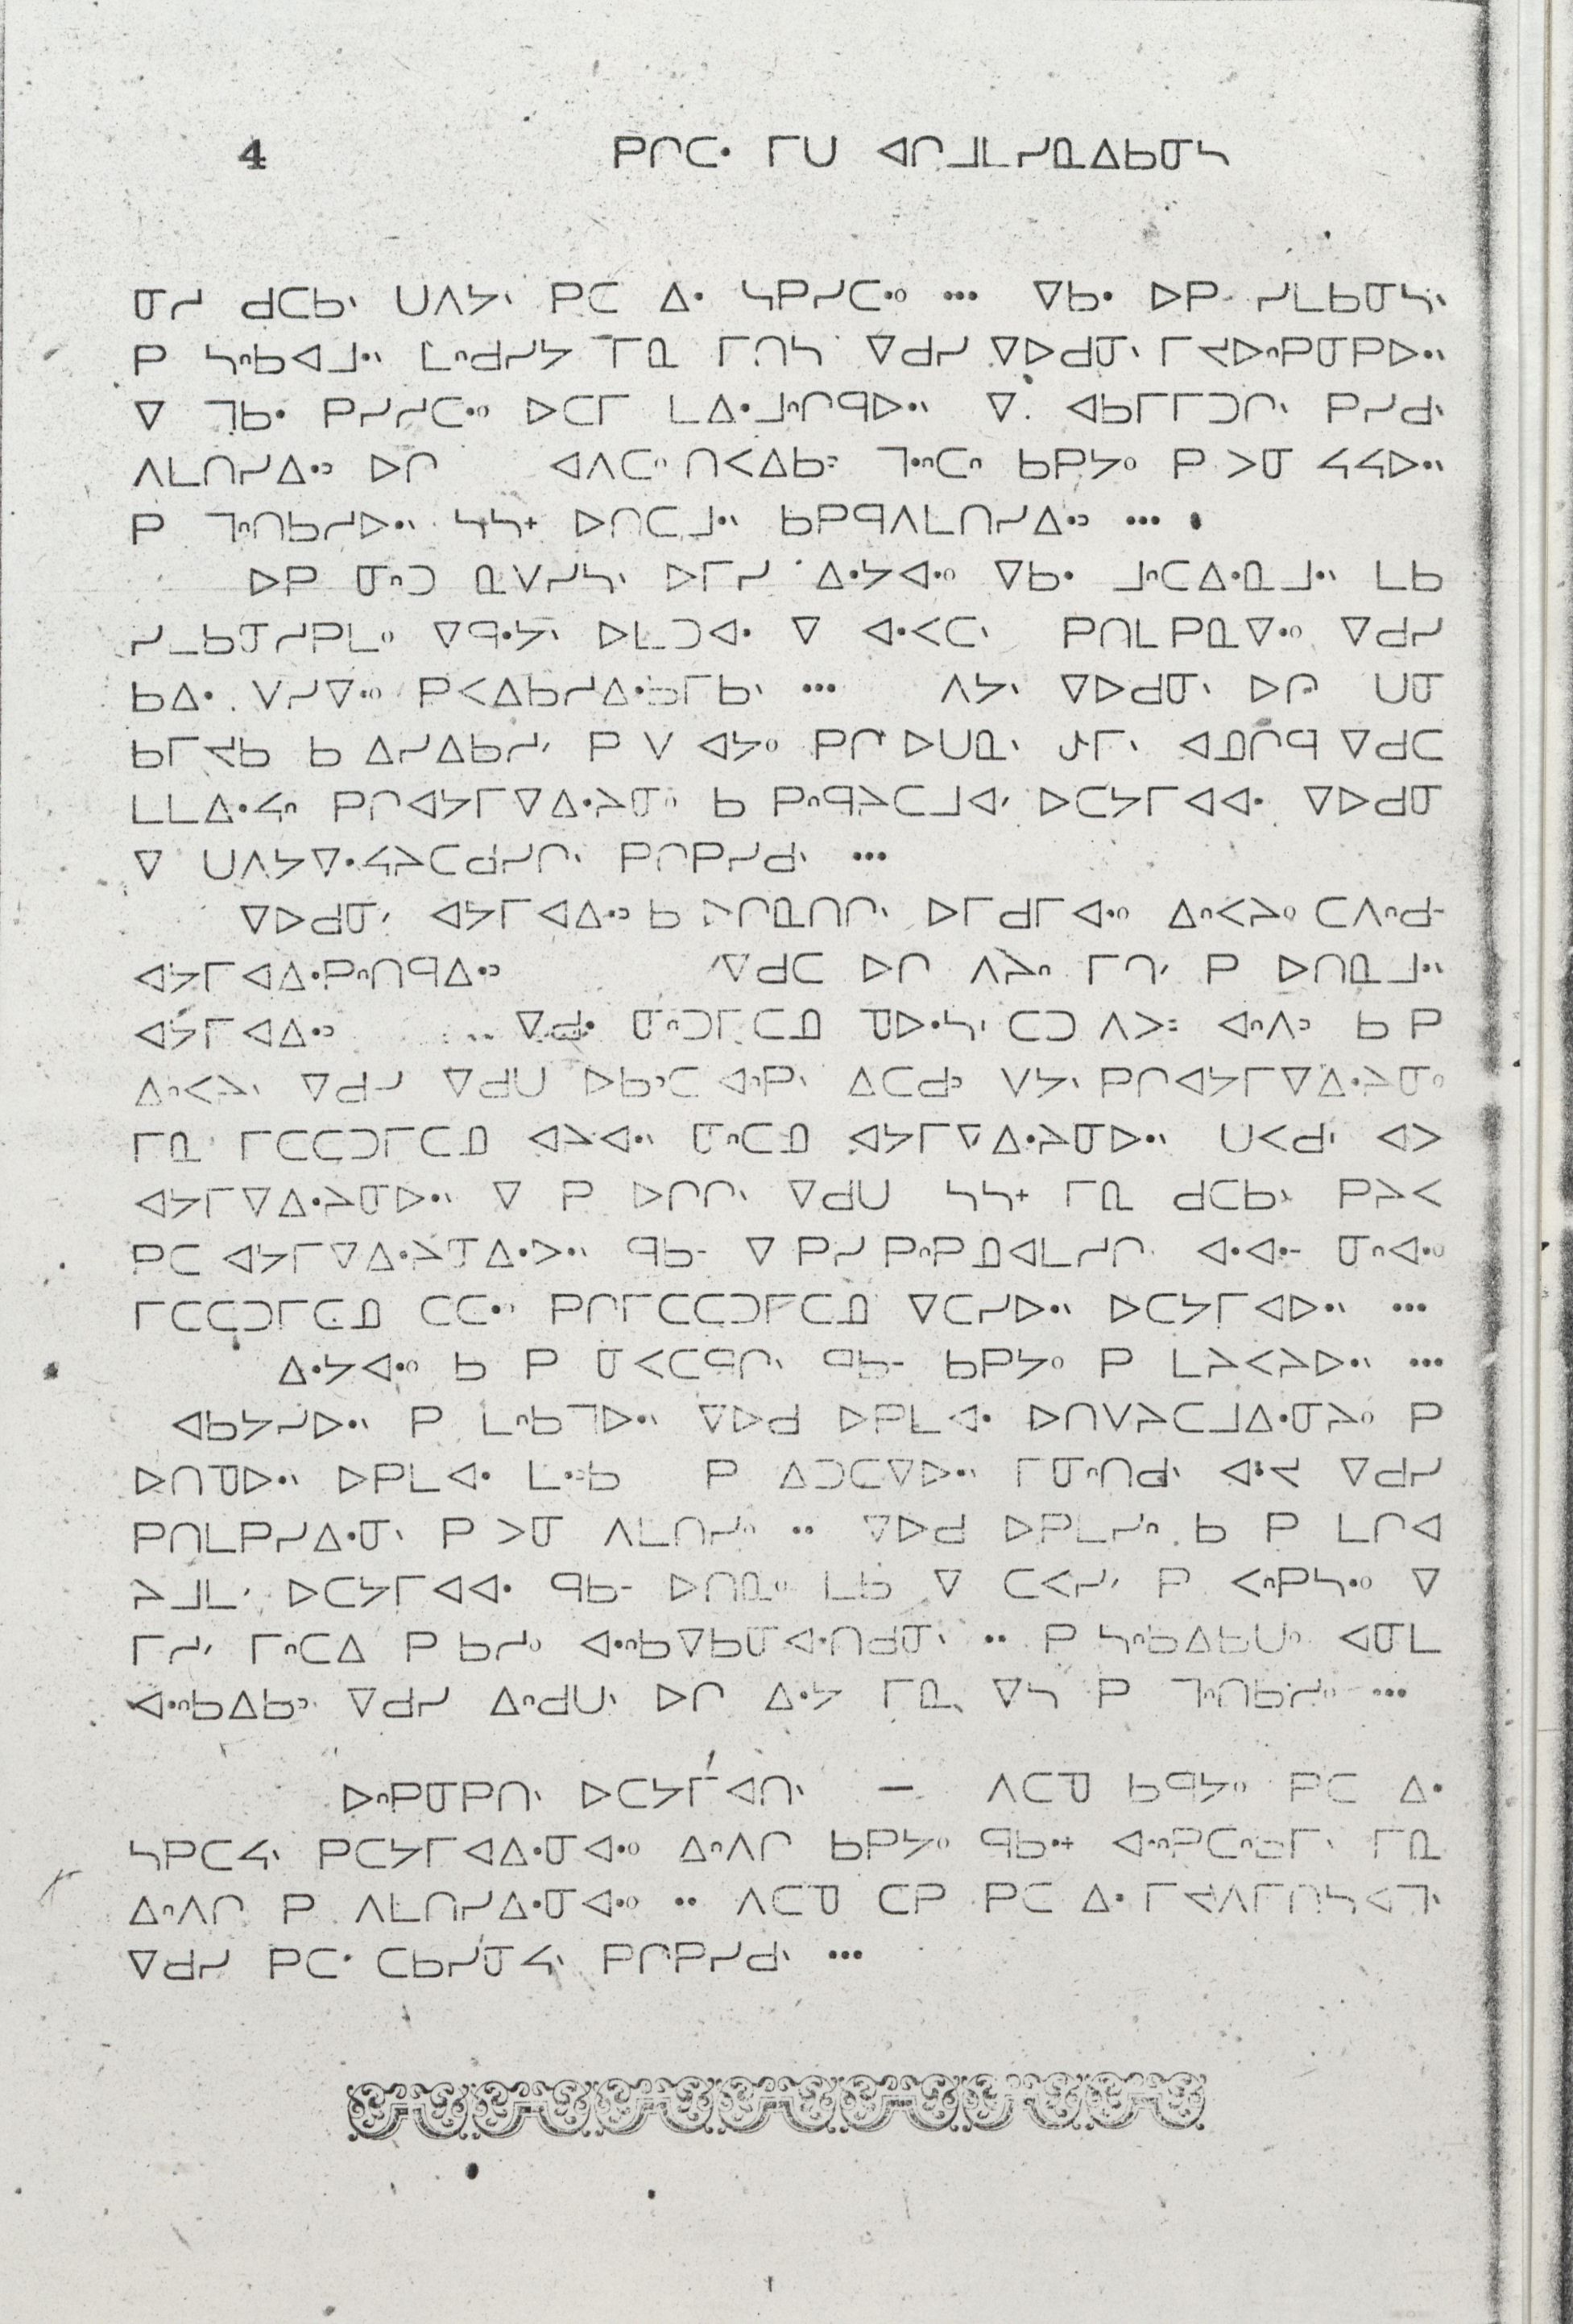 4 ᑭᒋᑕᐧ ᒥᑌ ᐊᒋᒧᒪᓯᓇᐃᑲᓂᓴ
ᓂᓯ ᑯᑕᑲᐠ ᑌᐱᔭᐠ ᑭᑕ ᐃᐧ ᓴᑭᓯᑕᐧᐤ ᐧᐧᐧ ᐁᑲᐧ ᐅᑭ ᓯᒪᑲᓂᓴᐠ
ᑭ ᓴᐢᑲᐊᒧᐧᐠ ᒪᐢᑯᓯᔭ ᒥᓇ ᒥᑎᓴ ᐁᑯᓯ ᐁᐅᑯᓂᐠ ᒥᔪᐅᐢᑭᓂᑭᐅᐧᐠ
ᐁ ᒣᑲᐧ ᑭᓯᓯᑕᐧᐤ ᐅᑕᒥ ᒪᐃᐧᒧᐢᒋᑫᐅᐧᐠ ᐁ ᐊᑲᒥᒥᑐᒋᐠ ᑭᓯᑯᐠ
ᐱᒪᑎᓯᐃᐧᐣ ᐅᒋ ᐊᐱᑕᐤ ᑎᐸᐃᑲᐣ ᒣᐧᐢᑕᐢ ᑲᑭᔭᐤ ᑭ ᐳᓂ ᔕᔕᐅᐧᐠ
ᑭ ᒣᐢᑎᑲᓯᐅᐧᐠ ᓴᓴᐩ ᐅᑎᑕᒧᐧᐠ ᑲᑭᑫᐱᒪᑎᓯᐃᐧᐣ ᐧᐧᐧ
ᐅᑭ ᓂᐢᑐ ᓇᐯᓯᓴᐠ ᐅᒥᓯ ᐃᐧᔭᐊᐧᐤ ᐁᑲᐧ ᒧᐢᑕᐃᐧᓇᒧᐧᐠ ᒪᑲ
ᓯᒪᑲᓂᓯᑭᒪᐤ ᐁᑫᐧᔭᐠ ᐅᒪᑐᐊᐧ ᐁ ᐊᐧᐸᑕᐠ ᑭᑎᒪᑭᓇᐁᐧᐤ ᐁᑯᓯ
ᑲᐃᐧ ᐯᓯᐁᐧᐤ ᑭᐸᐃᑲᓯᐃᐧᑲᒥᑲᐠ ᐧᐧᐧ ᐱᔭᐠ ᐁᐅᑯᓂᐠ ᐅᒋ ᑌᓂ
ᑲᒥᔪᑲ ᑲ ᐃᓯᐃᑲᓯᐟ ᑭ ᐯ ᐊᔭᐤ ᑭᒋ ᐅᑌᓇᐠ ᔑᒥᐠ ᐊᓄᒋᑫ ᐁᑯᑕ
ᒪᒪᐃᐧᔭᐢ ᑭᒋᐊᔭᒥᐁᐃᐧᔨᓂᐤ ᑲ ᑭᐢᑫᔨᑕᒧᐊᐟ ᐅᑕᔭᒥᐊᐊᐧ ᐁᐅᑯᓂ
ᐁ ᑌᐱᔭᐁᐧᔦᔨᑕᑯᓯᒋᐠ ᑭᒋᑭᓯᑯᐠ ᐧᐧᐧ
ᐁᐅᑯᓂᐟ ᐊᔭᒥᐊᐃᐧᐣ ᑲ ᐅᒋᓇᑎᒋᐠ ᐅᒥᑯᒥᐊᐧᐤ ᐃᐢᐸᔨᐤ ᑕᐱᐢᑯ-
ᐊᔭᒥᐊᐃᐧᑭᐢᑎᑫᐃᐧᐣ ᐁᑯᑕ ᐅᒋ ᐱᔨᐢ ᒥᒋᐟ ᑭ ᐅᑎᓇᒧᐧᐠ
ᐊᔭᒥᐊᐃᐧᐣ ᐁᑯᐧ ᓂᐢᑐᒥᑕᓄ ᓀᐅᐧᓴᐠ ᑕᑐ ᐱᐳᐣ ᐊᐢᐱᐣ ᑲ ᑭ
ᐃᐢᐸᔨᐠ ᐁᑯᓯ ᐁᑯᑌ ᐅᑲᐣᑕ ᐊᐢᑭᐠ ᐃᑕᑯᐣ ᐯᔭᐠ ᑭᒋᐊᔭᒥᐁᐃᐧᔨᓂᐤ
ᒥᓇ ᒥᑕᑕᑐᒥᑕᓄ ᐊᔨᐊᐧᐠ ᓂᐢᑕᓄ ᐊᔭᒥᐁᐃᐧᔨᓂᐅᐧᐠ ᑌᐸᑯᐠ ᐊᐳ
ᐊᔭᒥᐁᐃᐧᔨᓂᐅᐧᐠ ᐁ ᑭ ᐅᒋᒋᐠ ᐁᑯᑌ ᓴᓴᐩ ᒥᓇ ᑯᑕᑲᐠ ᑭᔨᐸ
ᑭᑕ ᐊᔭᒥᐁᐃᐧᔨᓂᐃᐧᐳᐧᐠ ᑫᑲ- ᐁ ᑭᓯ ᑭᐢᑭᓄᐊᒪᓯᒋᐠ ᐊᐧᐊᐧ- ᓂᐢᐊᐧᐤ
ᒥᑕᑕᑐᒥᑕᓄ ᑕᑕᐧᐤ ᑭᒋᒥᑕᑕᑐᒥᑕᓄ ᐁᑕᓯᐅᐧᐠ ᐅᑕᔭᒥᐊᐅᐧᐠ ᐧᐧᐧ
ᐃᐧᔭᐊᐧᐤ ᑲ ᑭ ᓂᐸᑕᑫᒋᐠ ᑫᑲ- ᑲᑭᔭᐤ ᑭ ᒪᔨᐸᔨᐅᐧᐠ ᐧᐧᐧ
ᐊᑲᔭᓯᐅᐧᐠ ᑭ ᒪᐢᑲᒣᐅᐧᐠ ᐁᐅᑯ ᐅᑭᒪᐊᐧ ᐅᑎᐯᔨᑕᒧᐃᐧᓂᔨᐤ ᑭ
ᐅᑎᓀᐅᐧᐠ ᐅᑭᒪᐊᐧ ᒪᐢᑲ ᑭ ᐃᑐᑕᐁᐅᐧᐠ ᒥᓂᐢᑎᑯᐠ ᐊᐧᔪ ᐁᑯᓯ
ᑭᑎᒪᑭᓯᐃᐧᓂᐠ ᑭ ᐳᓂ ᐱᒪᑎᓯᐤ ᐧᐧ ᐁᐅᑯ ᐅᑭᒪᓯᐢ ᑲ ᑭ ᒪᒋᐊ
ᔨᒧᒪᐟ ᐅᑕᔭᒥᐊᐊᐧ ᑫᑲ- ᐅᑎᓇᐤ ᒪᑲ ᐁ ᑕᐸᓯᐟ ᑭ ᐸᐢᑭᓴᐧᐤ ᐁ
ᒥᓯᐟ ᒥᐢᑕᐃ ᑭ ᑲᓯᐤ ᐊᐧᐢᑲᐁᑲᓂᐊᐧᑎᑯᓂᐠ ᐧᐧ ᑭ ᓴᐢᑲᐃᑲᑌᐤ ᐊᓂᒪ
ᐊᐧᐢᑲᐃᑲᐣ ᐁᑯᓯ ᐃᐢᑯᑌᐠ ᐅᒋ ᐃᐧᔭ ᒥᓇ ᐁᓴ ᑭ ᒣᐢᑎᑲᓯᐤ ᐧᐧᐧ
ᐅᐢᑭᓂᑭᑎᐠ ᐅᑕᔭᒥᐊᑎᐠ — ᐱᑕᓀ ᑲᑫᔭᐤ ᑭᑕ ᐃᐧ
ᓴᑭᑕᔦᐠ ᑭᑕᔭᒥᐊᐃᐧᓂᐊᐧᐤ ᐃᐢᐱᒋ ᑲᑭᔭᐤ ᑫᑲᐧᐩ ᐊᐧᐢᑭᑕᐢᑲᒥᐠ ᒥᓇ
ᐃᐢᐱᒋ ᑭ ᐱᒪᑎᓯᐃᐧᓂᐊᐧᐤ ᐧᐧ ᐱᑕᓀ ᑕᑭ ᑭᑕ ᐃᐧ ᒥᔪᐱᒥᑎᓴᐊᒣᐠ
ᐁᑯᓯ ᑭᑕᐧ ᑕᑲᓯᓂᔦᐠ ᑭᒋᑭᓯᑯᐠ ᐧᐧᐧ